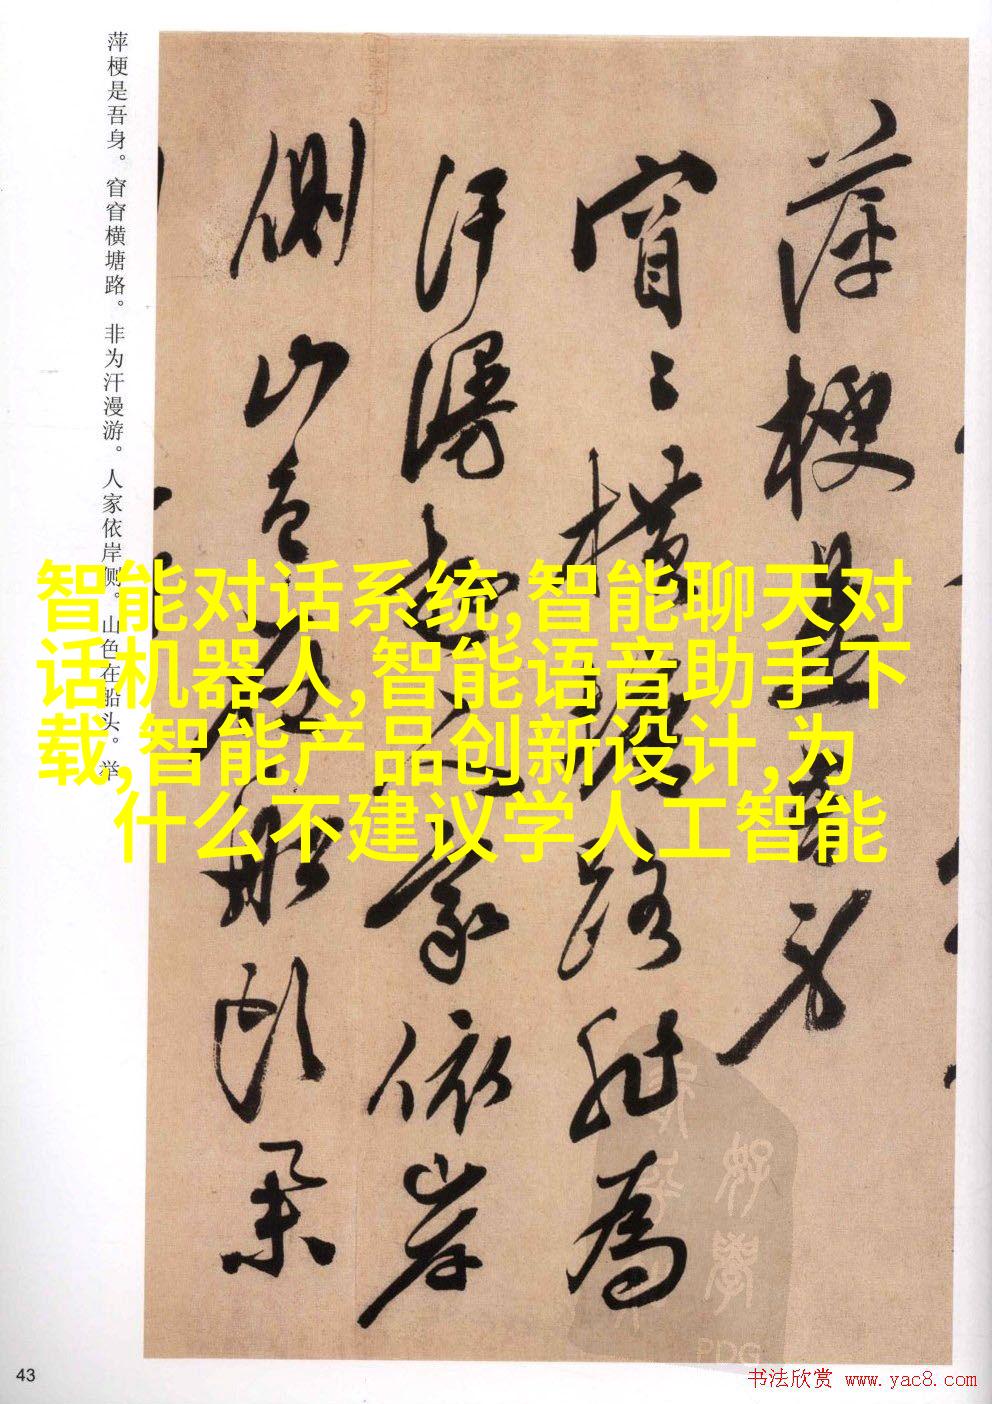 萍梗是吾身。窅窅横塘路。非为汗漫游。人家依岸侧。山色在船头。举
萍梗是吾身
窅窅横塘路非为
汗漫游人家依岸
侧山色在船头举
智能对话系统,智能聊天对
话机器人,智能语音助手下
载,智能产品创新设计,为
什么不建议学人工智能
43
PDG
书法欣赏 www.yac8.com